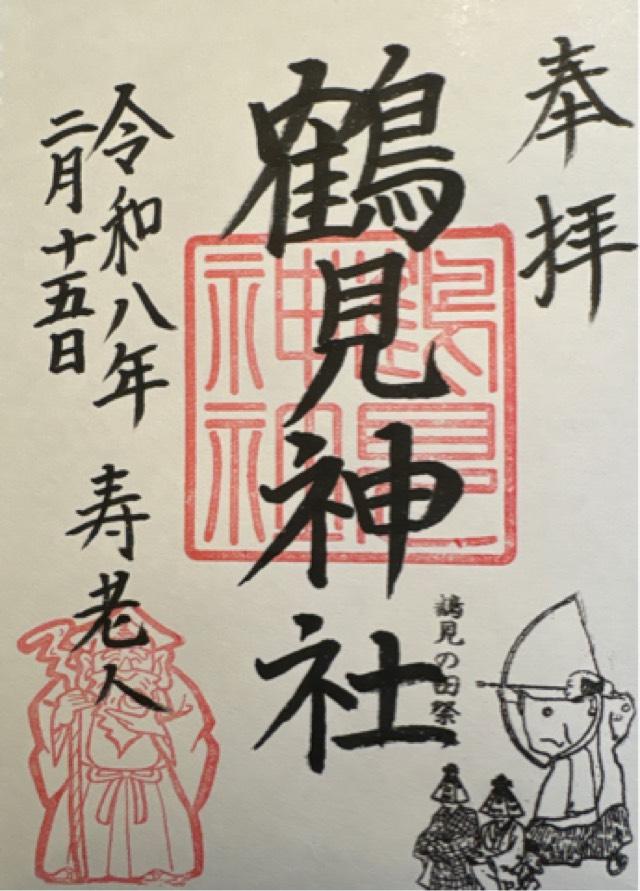 奉拝
鶴見神社
鶴見神社
鶴見の田祭
令和八年 寿老人
二月十五日